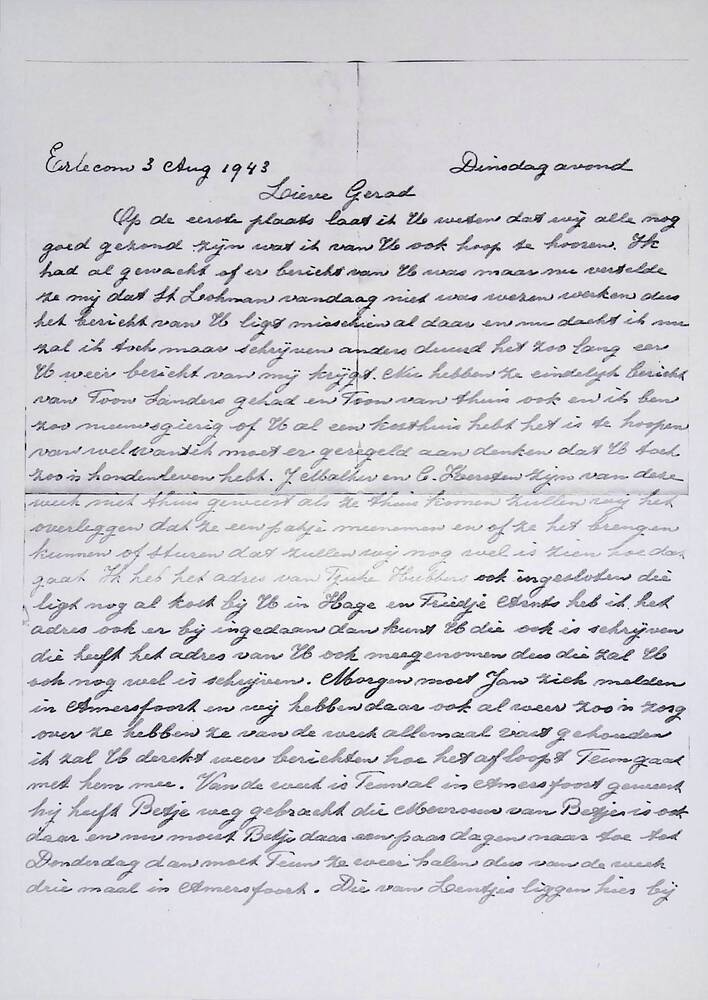 Erlecom 3 Aug 1943 Dinsdagavond
Lieve Gerad
Op de eerste plaats laat ik U weten dat wij alle nog
goed gezond zijn wat ik van U ook hoop te hooren. Ik
had al gewacht of er bericht van U was maar nu vertelde
ze mij dat St Leohman vandaag niet was wezen werken dus
het bericht van U ligt misschien al daar en nu dacht ik nu
zal ik toch maar schrijven anders duurd het zoo lang eer
U weer bericht van mij krijgt. Nu hebben ze eindelijk bericht
van Toon Sanders gehad en Toon van thuis ook en ik ben
zoo nieuwsgierig of U al een kosthuis hebt het is te hoopen
van wel want ik moet er geregeld aan denken dat U toch
zoo'n hondenleven hebt. J Malker en C. Kersten zijn van deze
week niet thuis geweest als ze thuis komen zullen wij het
overleggen dat ze een patje meenemen en of ze het brengen
kunnen of sturen dat zullen wij nog wel is zien hoe dat
gaat Ik heb het adres van Huibers ook ingesloten die
ligt nog al kost bij U in Hage en Friedje Arnts heb ik het
adres ook er bij ingedaan dan kunt U die ook is schrijven
die heeft het adres van U ook meegenomen dus die zal U
ook nog wel is schrijven. Morgen moet Jan zich melden
in Amersfoort en wij hebben daar ook al weer zoo'n zorg
over ze hebben ze van de week allemaal vast gehouden
ik zal U derekt weer berichten hoe het afloopt Teun gaat
met hem mee. Van de week is Teun al in Amersfoort geweest
hij heeft Betje weg gebracht die Mevrouw van Betje is ook
daar en nu moest Betje daar een paar dagen naar toe tot
Donderdag dan moet Teun ze weer halen dus van de week
drie maal in Amersfoort. Die van Lentjes liggen hier bij